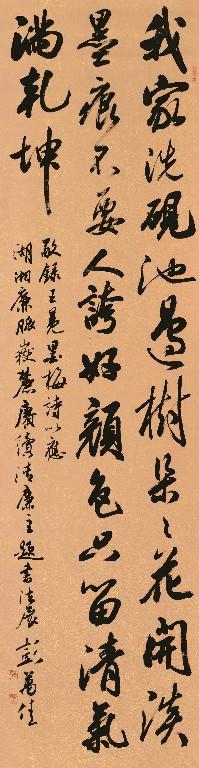 我家洗砚池邊樹朵々花開淡
墨痕不要人誇好顏色只留清氣
滿乾坤
敬錄王冕墨梅詩以應
湖湘廉脈嶽麓賡續清廉主題書法展 彭萬佳